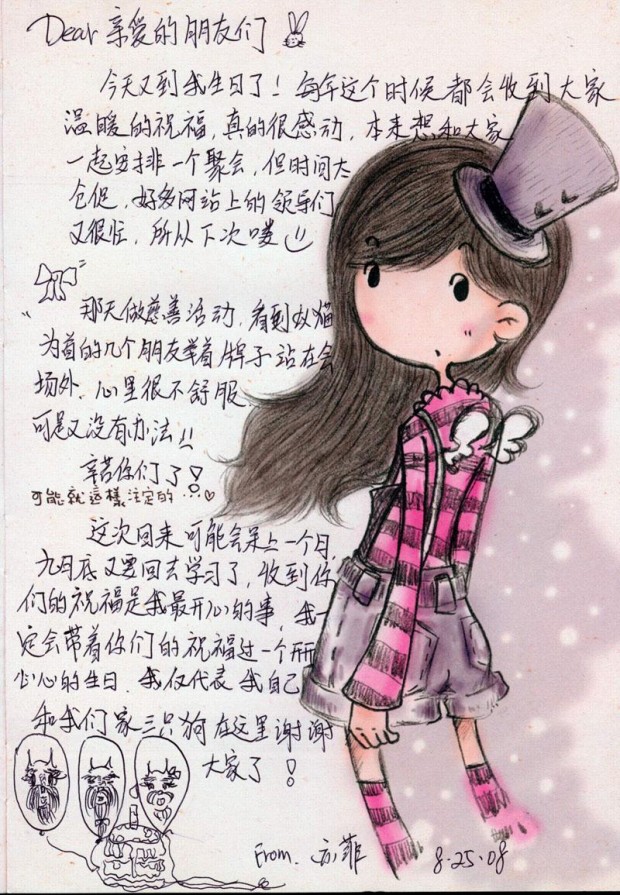 Dear 亲爱的朋友们
今天又到我生日了！每年这个时候都会收到大家
温暖的祝福，真的很感动，本来想和大家
一起安排一个聚会，但时间太
仓促，好多网站上的领导们
又很忙，所以下次喽
那天做慈善活动，看到 猫
为首的几个朋友举着牌子站在会
场外，心里很不舒服
可是又没有办法!!
辛苦你们了！
可能就這樣注定的…
这次回来可能会呆上一个月，
九月底又要回去学习了，收到你
们的祝福是我最开心的事，我一
定会带着你们的祝福过一个开
心心的生日．我仅代表我自己
和我们家三只狗在这里谢谢
大家了！
From. 亦菲 8.25.08